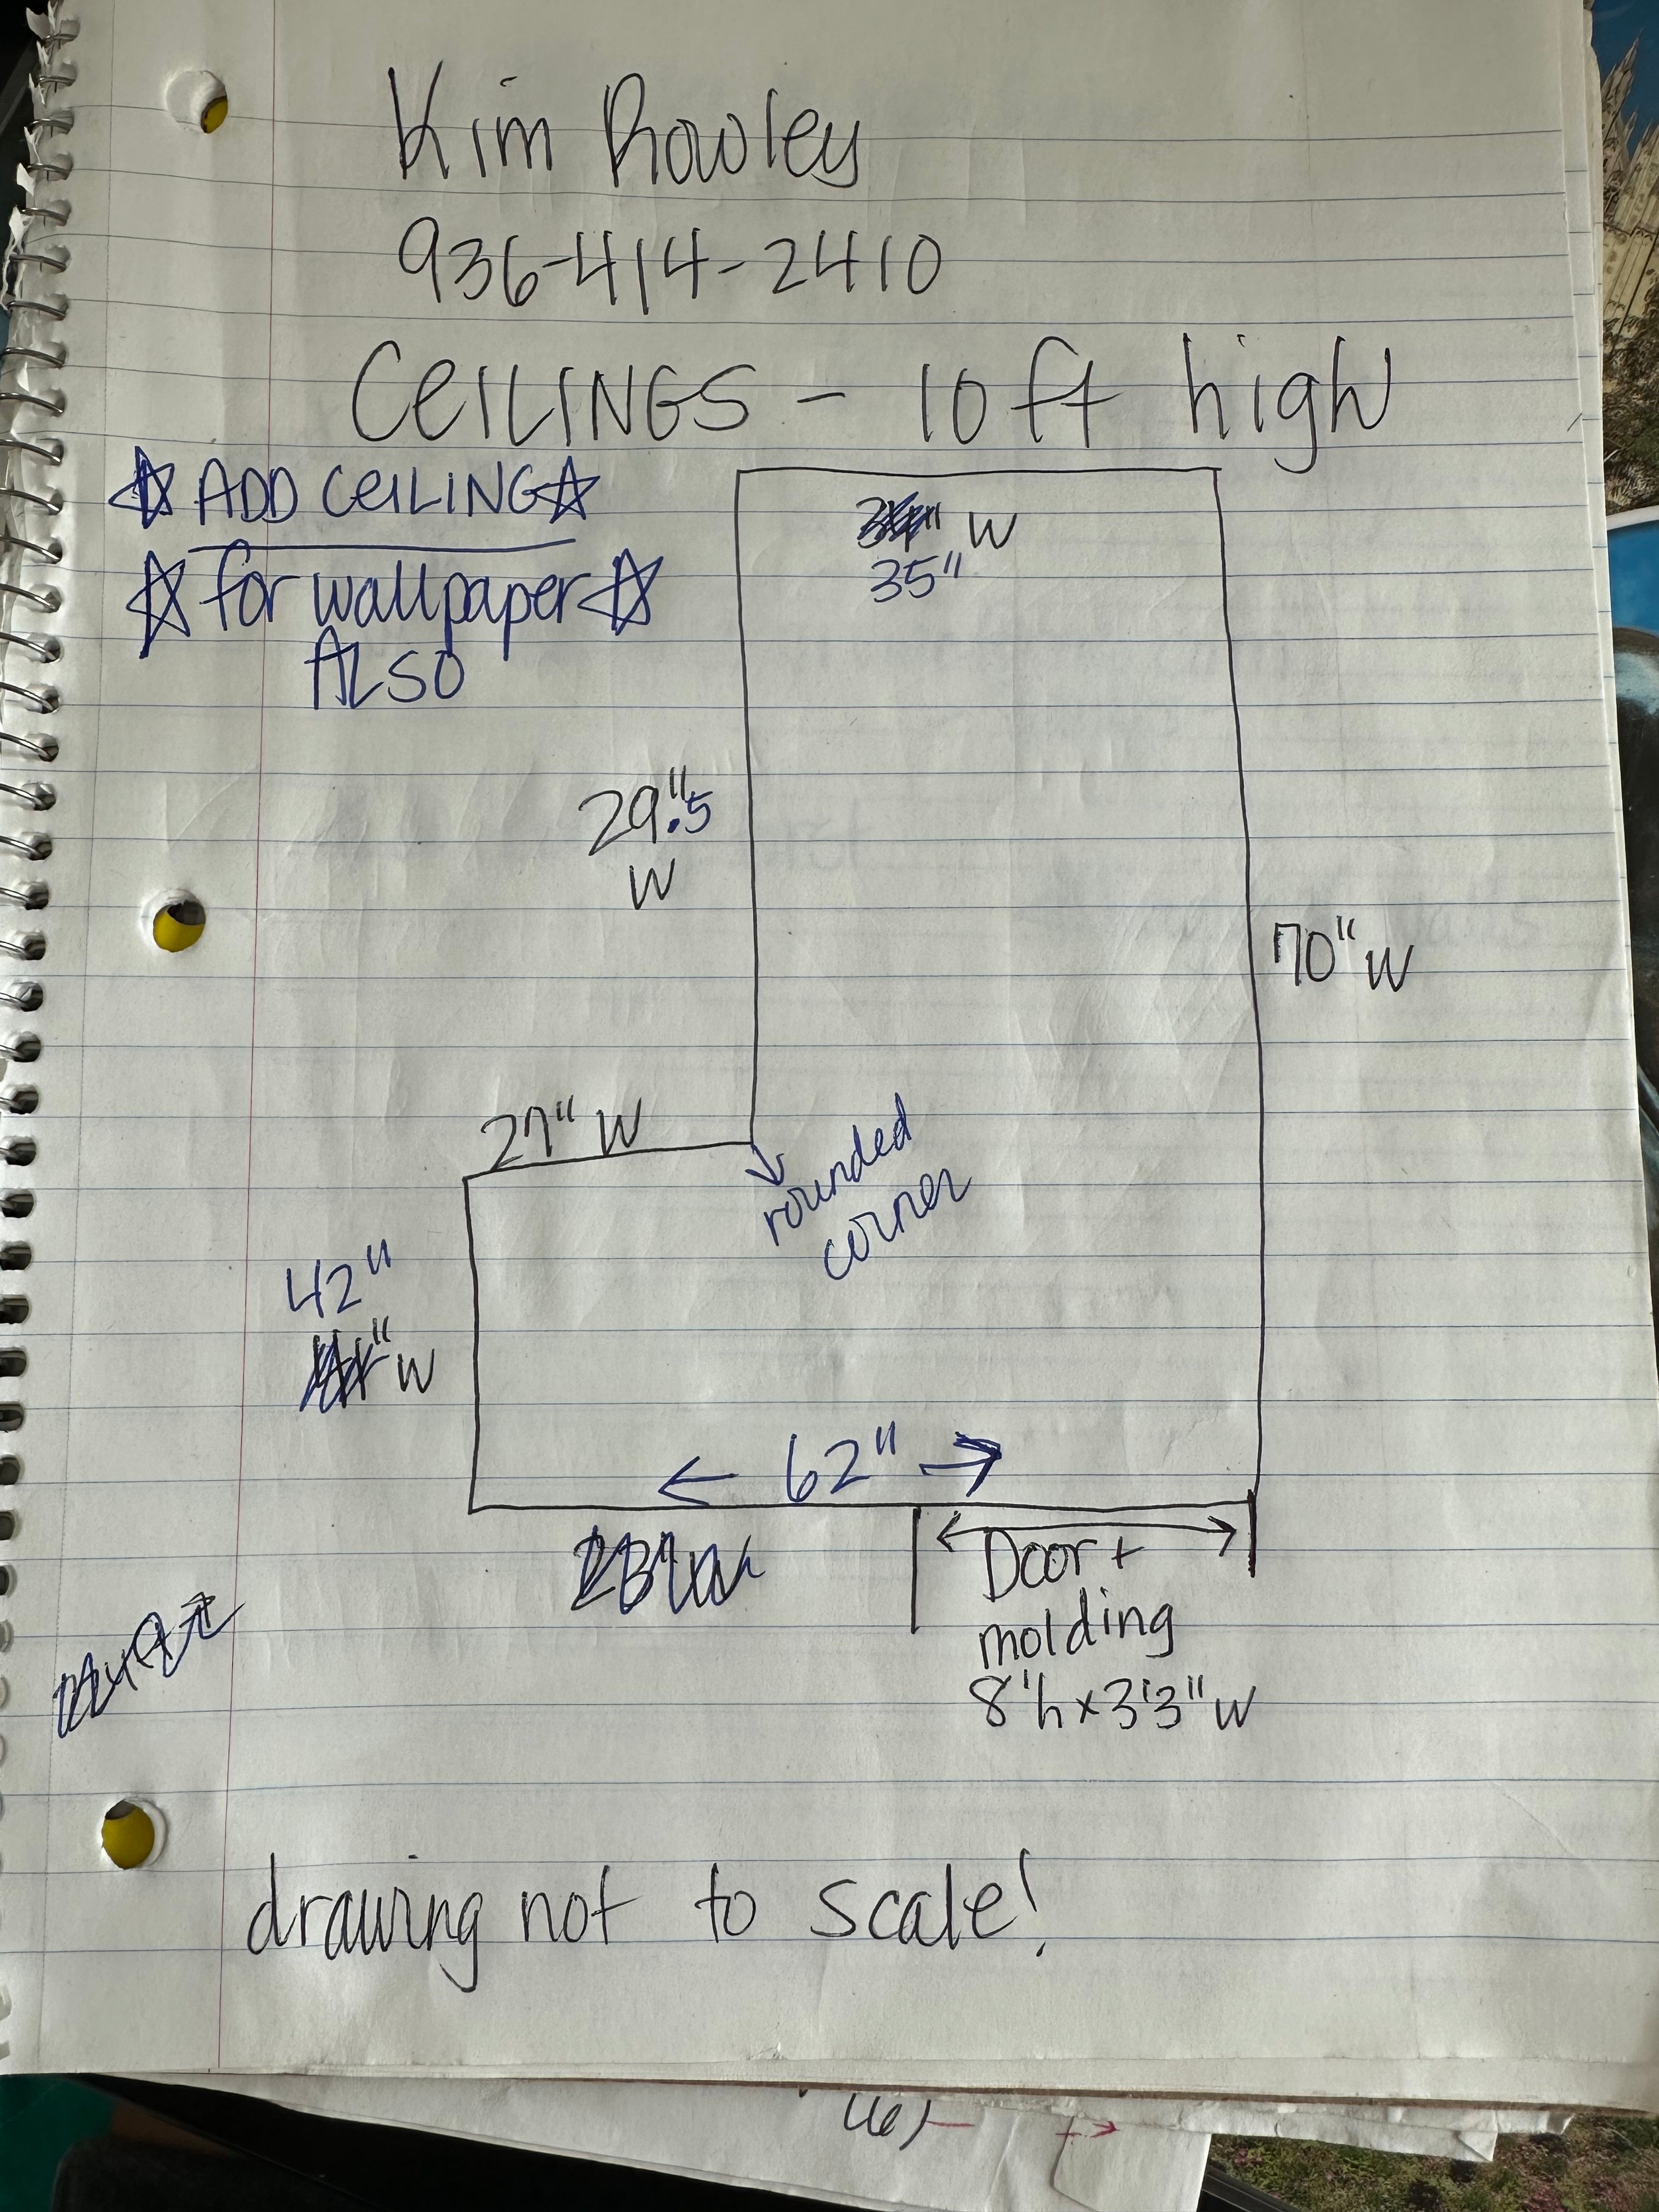 Kim Rowley
936-414-2410
CEILINGS - 10ft high
☆ ADD CEILING ☆
☆ for wallpaper ☆
ALSO
W
35"
29.5"
W
70" W
27" W
rounded
corner
42"
W
← 62" →
Door +
molding
8'h x 3'3" W
drawing not to scale!